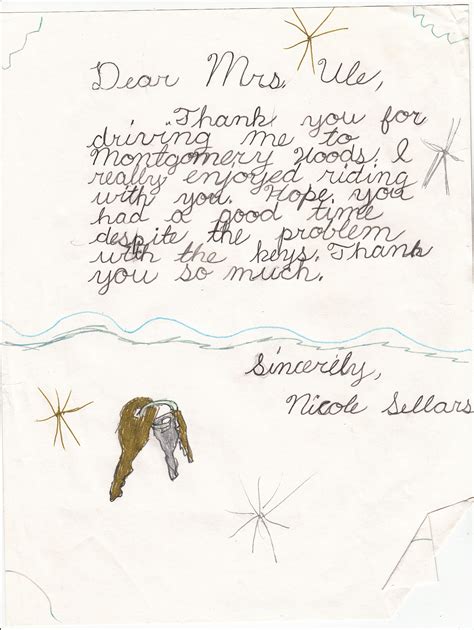 Dear Mrs. Ule,
Thank you for
driving me to
Montgomery Woods. I
really enjoyed riding
with you. Hope you
had a good time
despite the problem
with the keys. Thank
you so much.
Sincerely,
Nicole Sellars